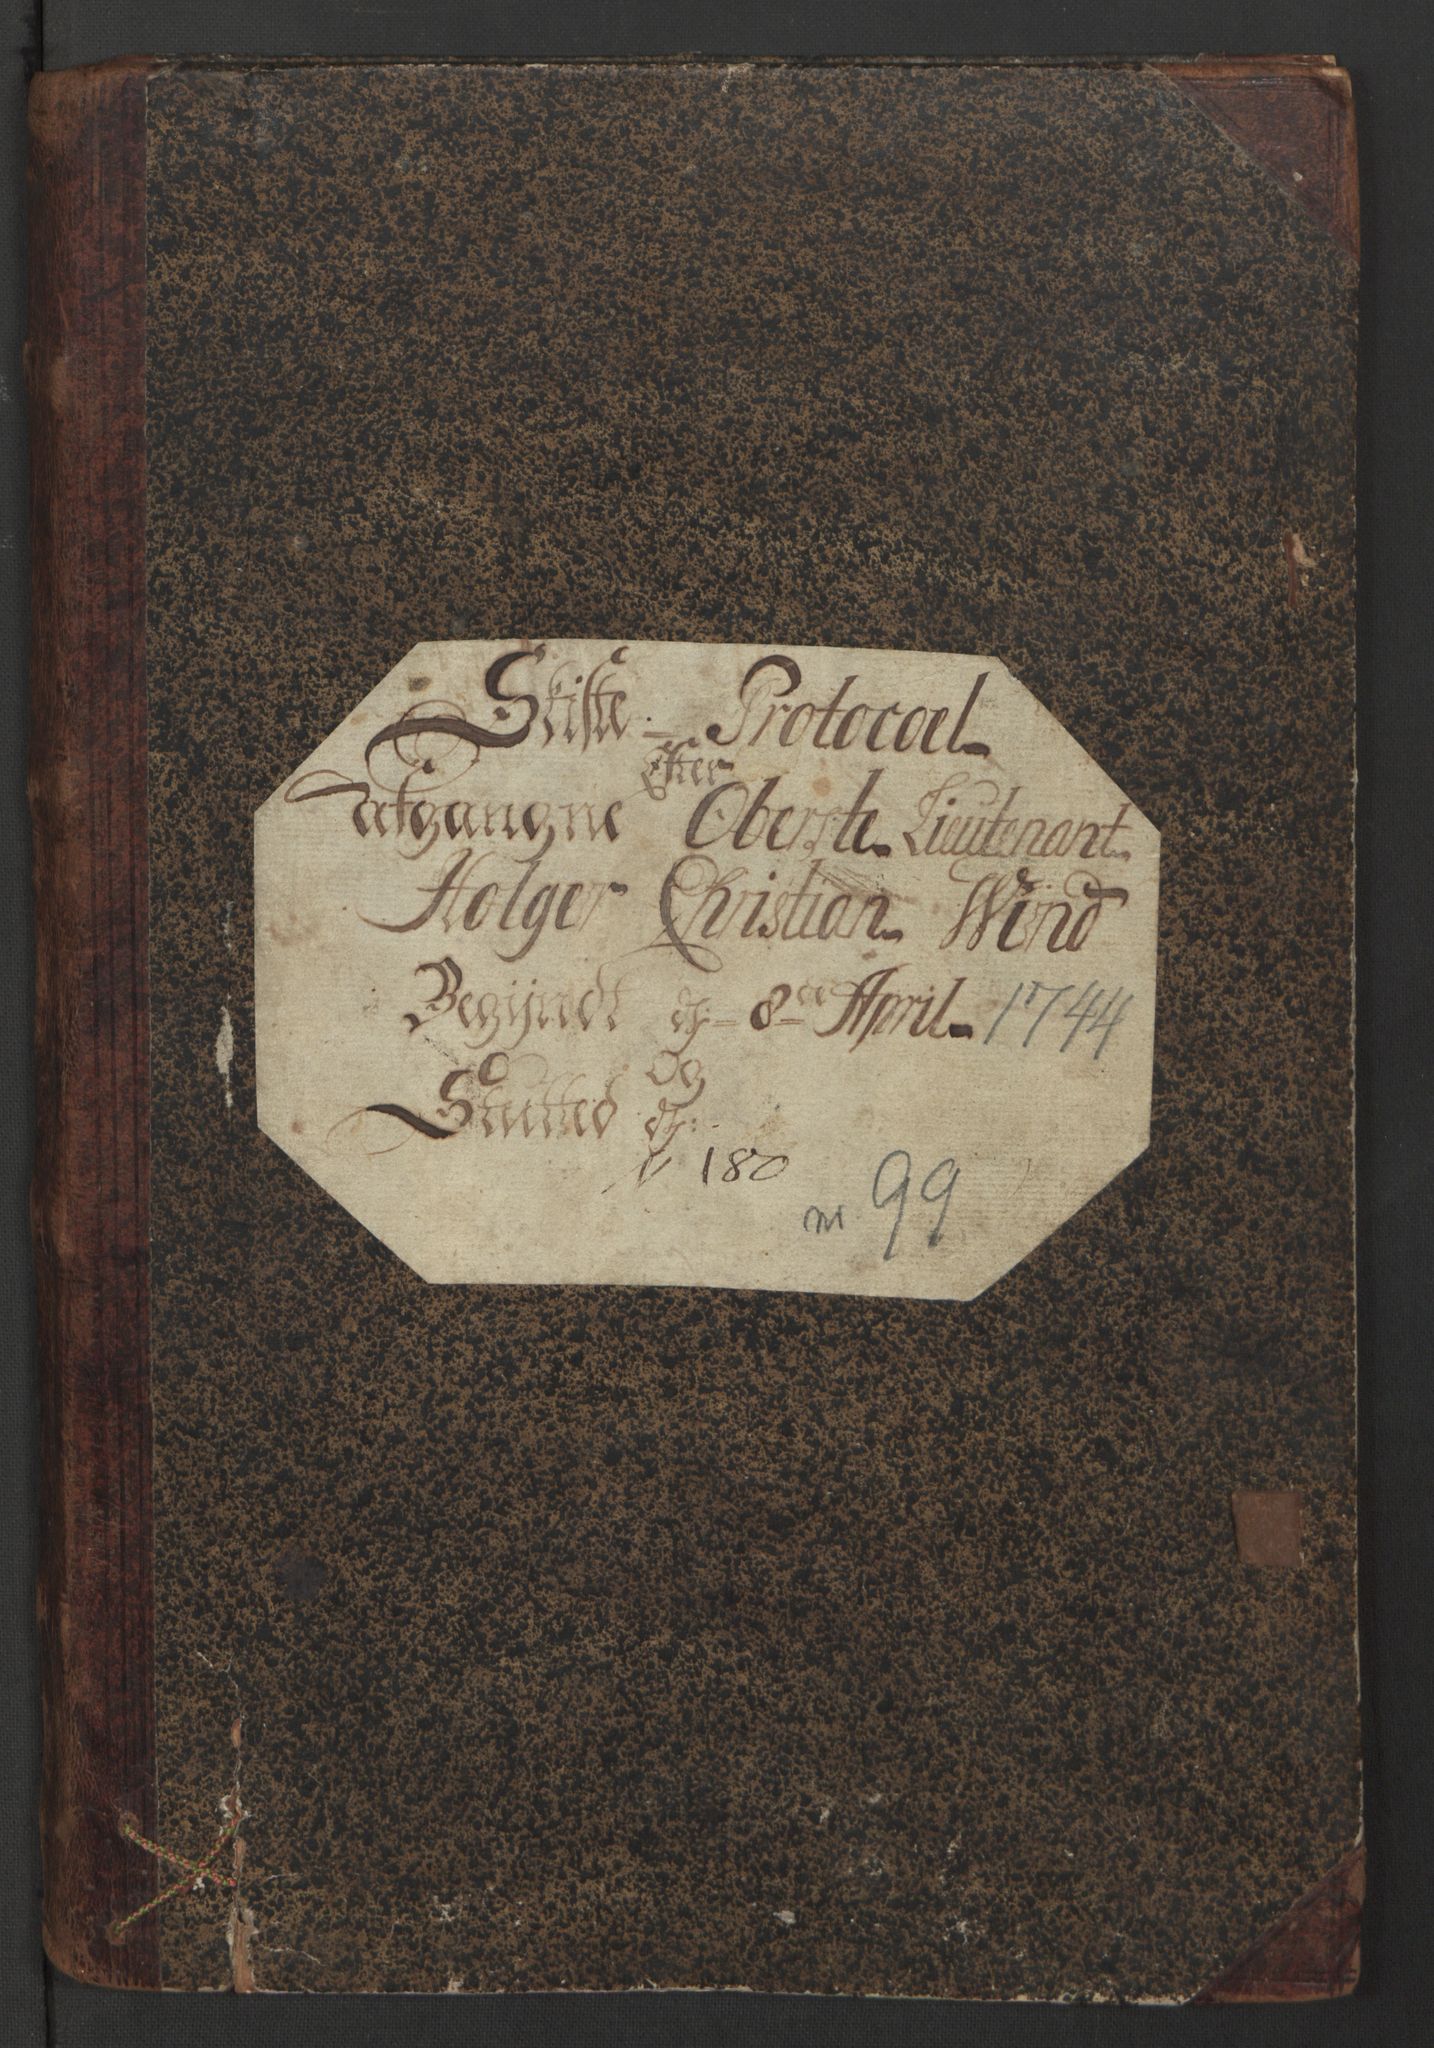 Skifte - Protocoel
Efter
Afgangne Oberste Lieutenant
Holger Christian Wind
Begÿndt d: 8de April 1744
Og
Slutted d:
180
nr 99